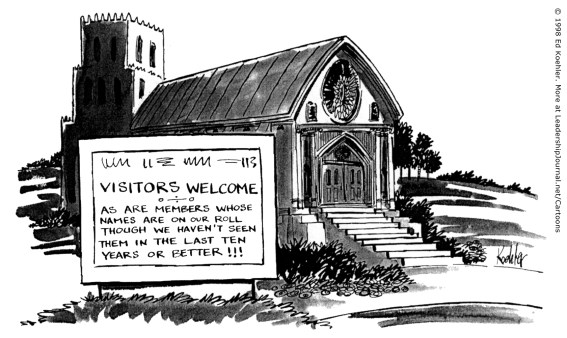 VISITORS WELCOME
AS ARE MEMBERS WHOSE
NAMES ARE ON OUR ROLL
THOUGH WE HAVEN'T SEEN
THEM IN THE LAST TEN
YEARS OR BETTER !!!
Koehler
© 1998 Ed Koehler. More at LeadershipJournal.net/Cartoons